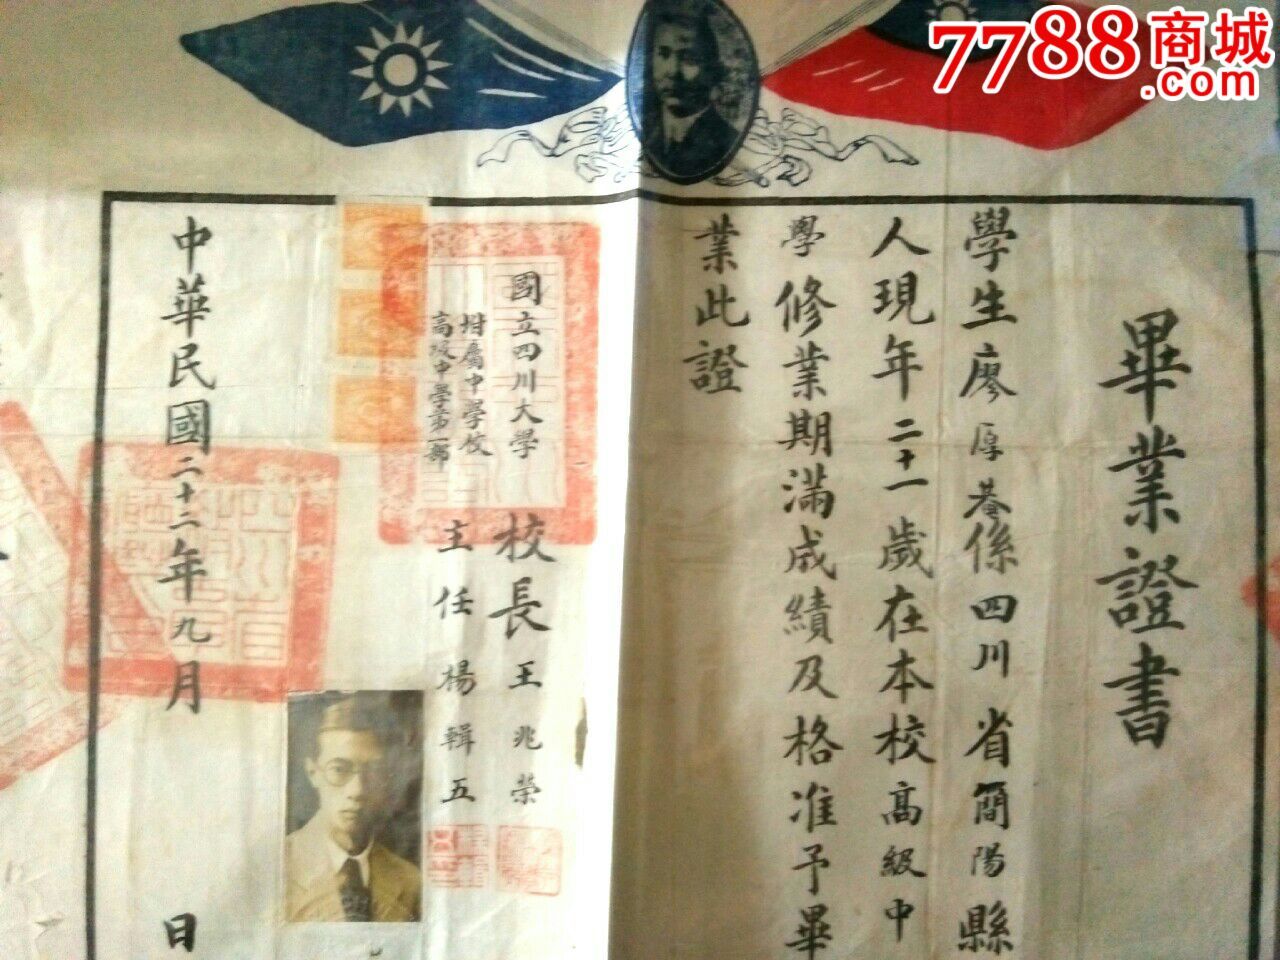 7788商城
.com
畢業證書
學生廖厚菴係四川省簡陽縣
人現年二十一歲在本校高級中
學修業期滿成績及格准予畢
業此證
國立四川大學
坿屬中學校
高級中學第一部
校長王兆榮
主任楊輯五
中華民國二十二年九月 日